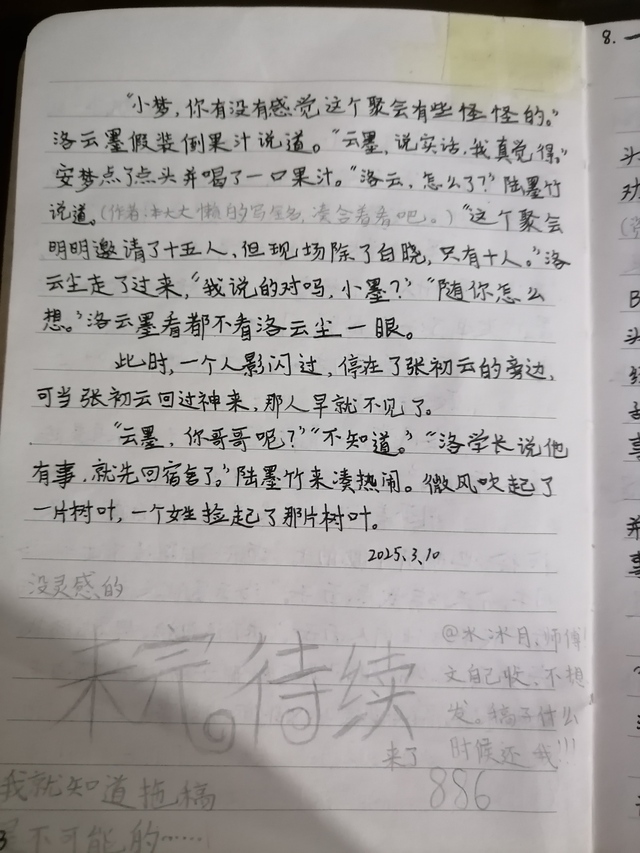 “小梦，你有没有感觉这个聚会有些怪怪的。”
洛云墨假装倒果汁说道。“云墨，说实话，我真觉得。”
安梦点了点头并喝了一口果汁。“洛云，怎么了？”陆墨竹
说道。（作者：本大大懒的写全名，凑合着看吧。）“这个聚会
明明邀请了十五人，但现场除了白晓，只有十人。”洛
云尘走了过来，“我说的对吗，小墨？”“随你怎么
想。”洛云墨看都不看洛云尘一眼。
此时，一个人影闪过，停在了张初云的旁边，
可当张初云回过神来，那人早就不见了。
“云墨，你哥哥呢？”“不知道。”“洛学长说他
有事，就先回宿舍了。”陆墨竹来凑热闹。微风吹起了
一片树叶，一个女生捡起了那片树叶。
2025.3.10
没灵感的
未完。待续
@水冰月.师傅
文自己收，不想
发。稿子什么
时候还我!!!
来了
886
我就知道拖稿
不可能的……
3
8.
头
事